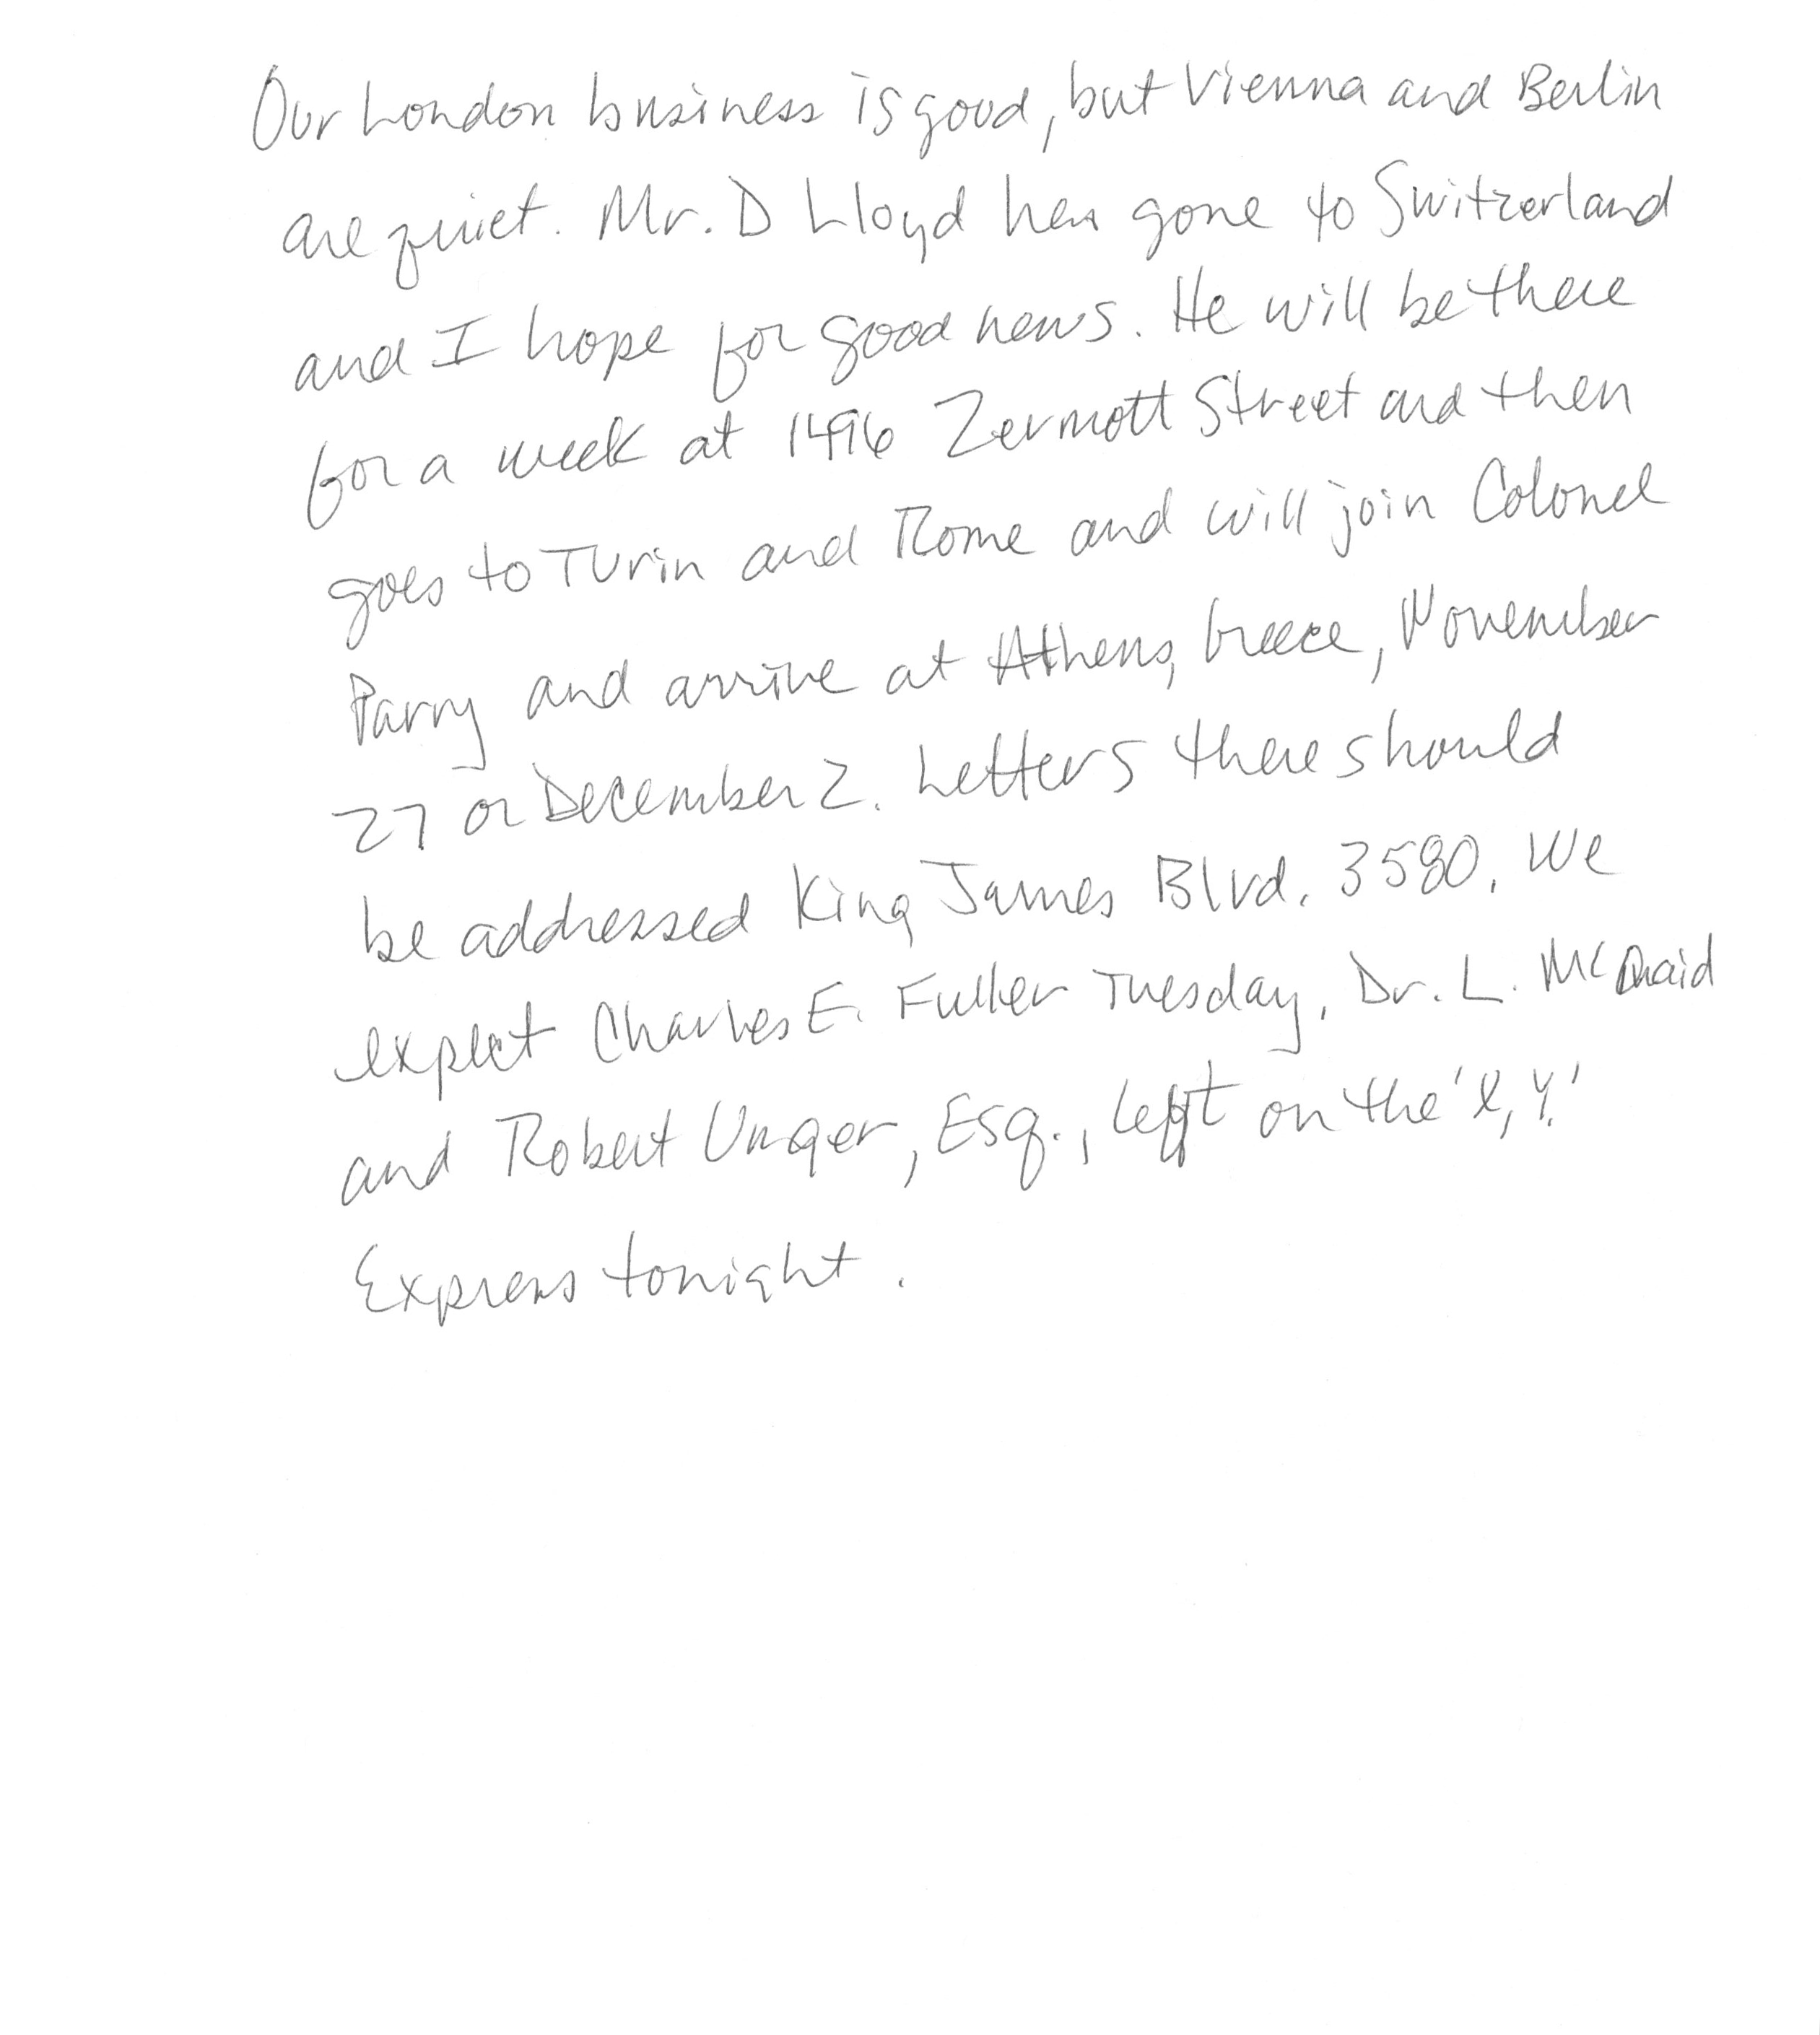 Our London business is good, but Vienna and Berlin
are quiet. Mr. D Lloyd has gone to Switzerland
and I hope for good news. He will be there
for a week at 1496 Zermott Street and then
goes to Turin and Rome and will join Colonel
Parry and arrive at Athens, Greece, November
27 or December 2. Letters there should
be addressed King James Blvd. 3580. We
expect Charles E. Fuller Tuesday. Dr. L. McQuaid
and Robert Unger, Esq., left on the 'X, Y.'
Express tonight.